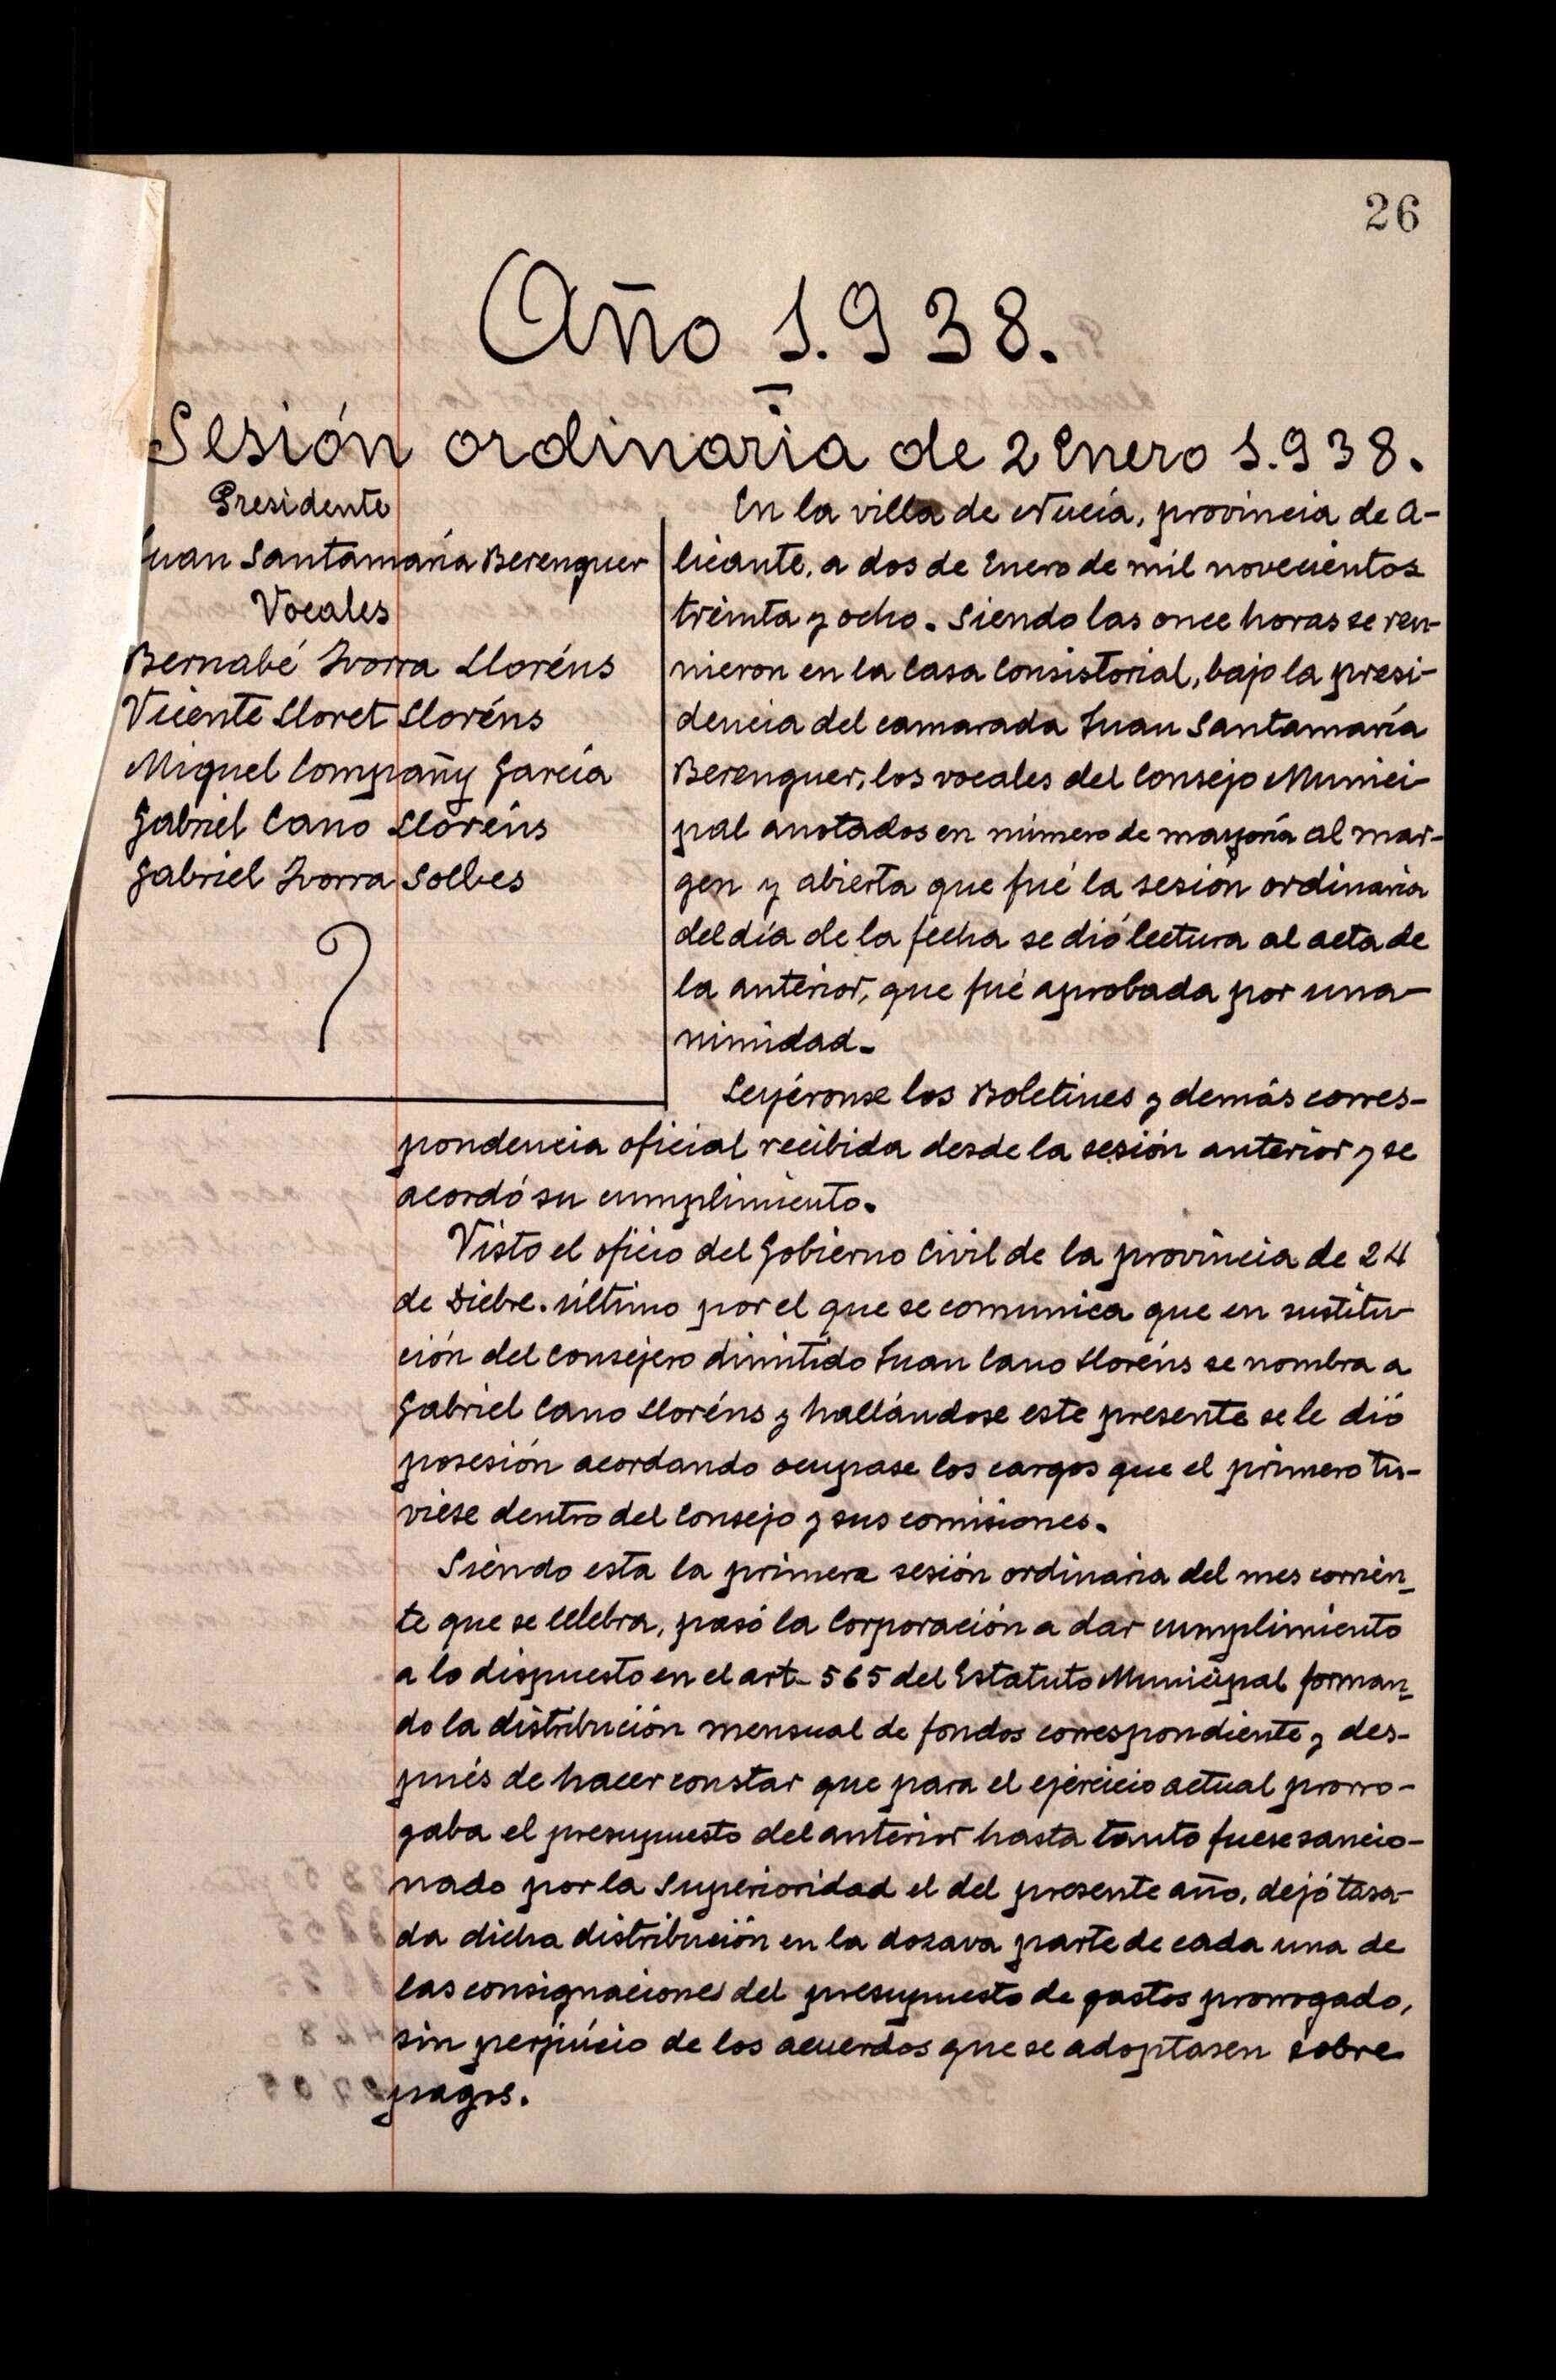 26
Año 1.938.
Sesión ordinaria de 2 Enero 1.938.
Presidente
Juan Santamaría Berenguer
Vocales
Bernabé Ivorra Lloréns
Vicente Lloret Lloréns
Miguel Compañy García
Gabriel Cano Lloréns
Gabriel Ivorra Solbes
En la villa de Nucía, provincia de A-
licante, a dos de Enero de mil novecientos
treinta y ocho. Siendo las once horas se reu-
nieron en la Casa Consistorial, bajo la presi-
dencia del camarada Juan Santamaría
Berenguer, los vocales del Consejo Munici-
pal anotados en número de mayoría al mar-
gen y abierta que fué la sesión ordinaria
del día de la fecha se dió lectura al acta de
la anterior, que fué aprobada por una-
nimidad.
Leyéronse los Boletines y demás corres-
pondencia oficial recibida desde la sesión anterior y se
acordó su cumplimiento.
Visto el oficio del Gobierno Civil de la provincia de 24
de Dicbre. último por el que se comunica que en sustitu-
ción del consejero dimitido Juan Cano Lloréns se nombra a
Gabriel Cano Lloréns y hallándose este presente se le dió
posesión acordando ocupase los cargos que el primero tu-
viese dentro del Consejo y sus comisiones.
Siendo esta la primera sesión ordinaria del mes corrien-
te que se celebra, pasó la Corporación a dar cumplimiento
a lo dispuesto en el art. 565 del Estatuto Municipal forman-
do la distribución mensual de fondos correspondiente y des-
pués de hacer constar que para el ejercicio actual prorro-
gaba el presupuesto del anterior hasta tanto fuese sancio-
nado por la Superioridad el del presente año, dejó tasa-
da dicha distribución en la dozava parte de cada una de
las consignaciones del presupuesto de gastos prorrogado,
sin perjuicio de los acuerdos que se adoptasen sobre
pagos.